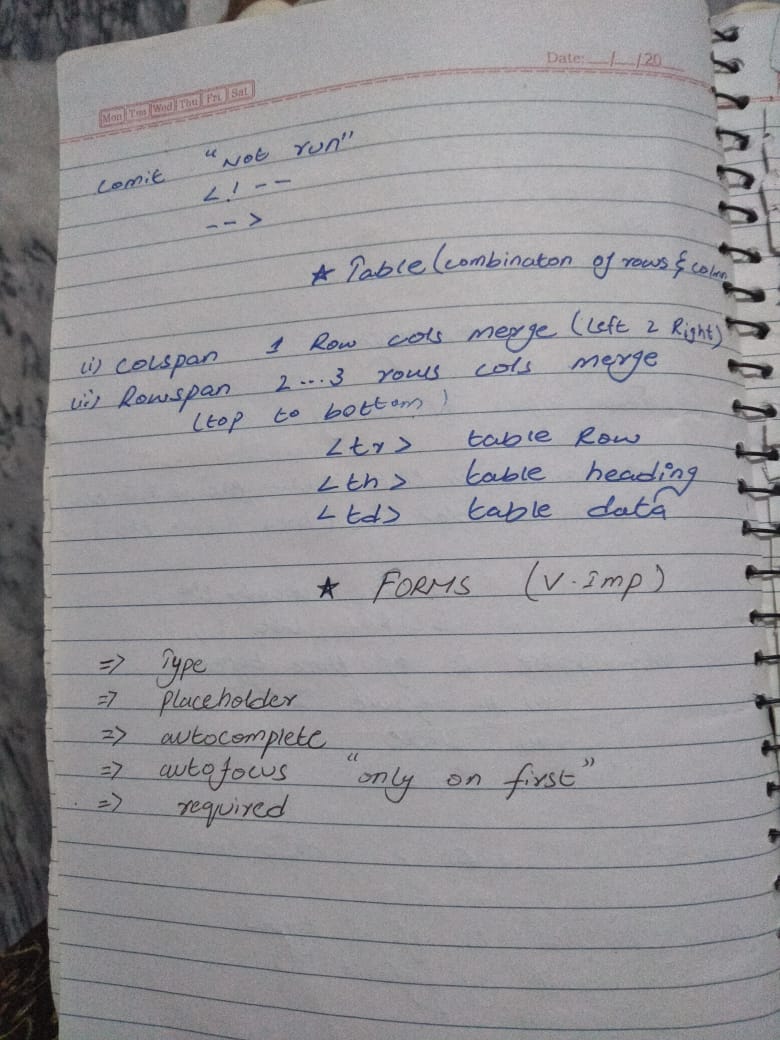 Date: __/__/20
Mon Tue Wed Thu Fri Sat
Comit "Not run"
<!--
-->
★ Table (combinaton of rows & colmn
(i) Colspan 1 Row cols merge (left 2 Right)
(ii) Rowspan 2...3 rows cols merge
(top to bottom)
<tr> table Row
<th> table heading
<td> table data
★ FORMS (V.Imp)
=> Type
=> placeholder
=> autocomplete
=> autofocus "only on first"
=> required